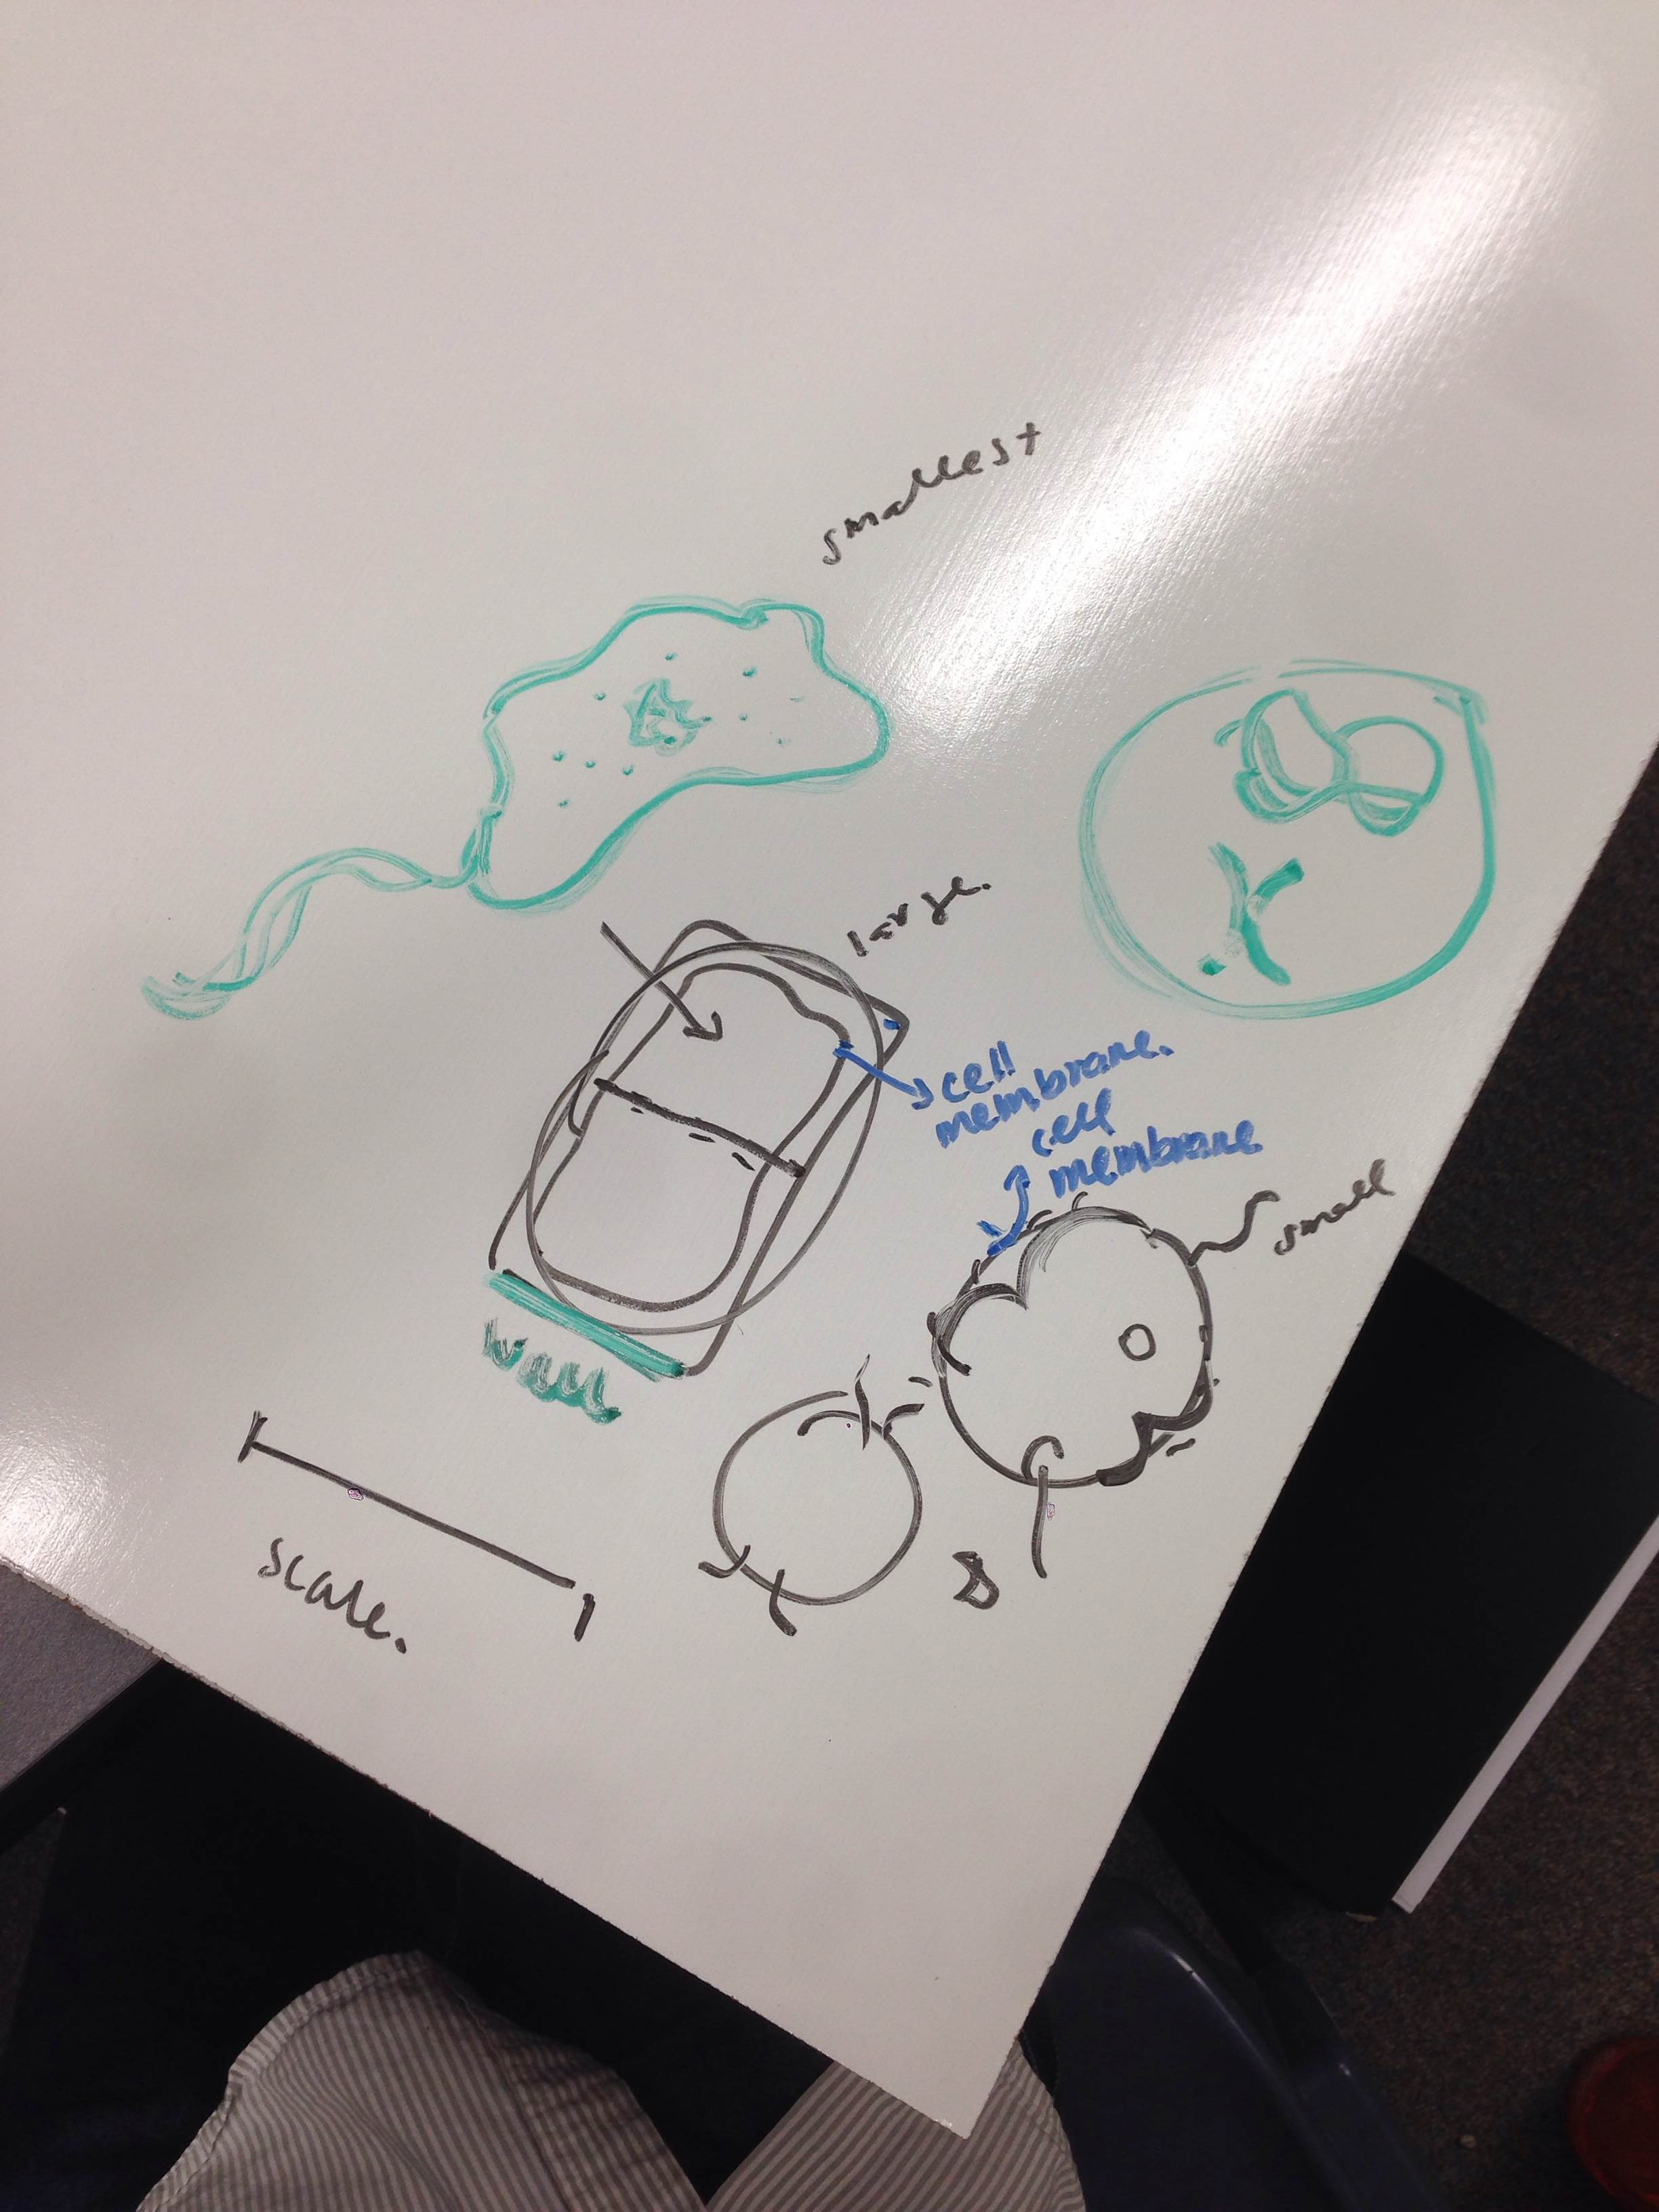 smallest
large.
cell
membrane.
cell
membrane
small
wall
scale.